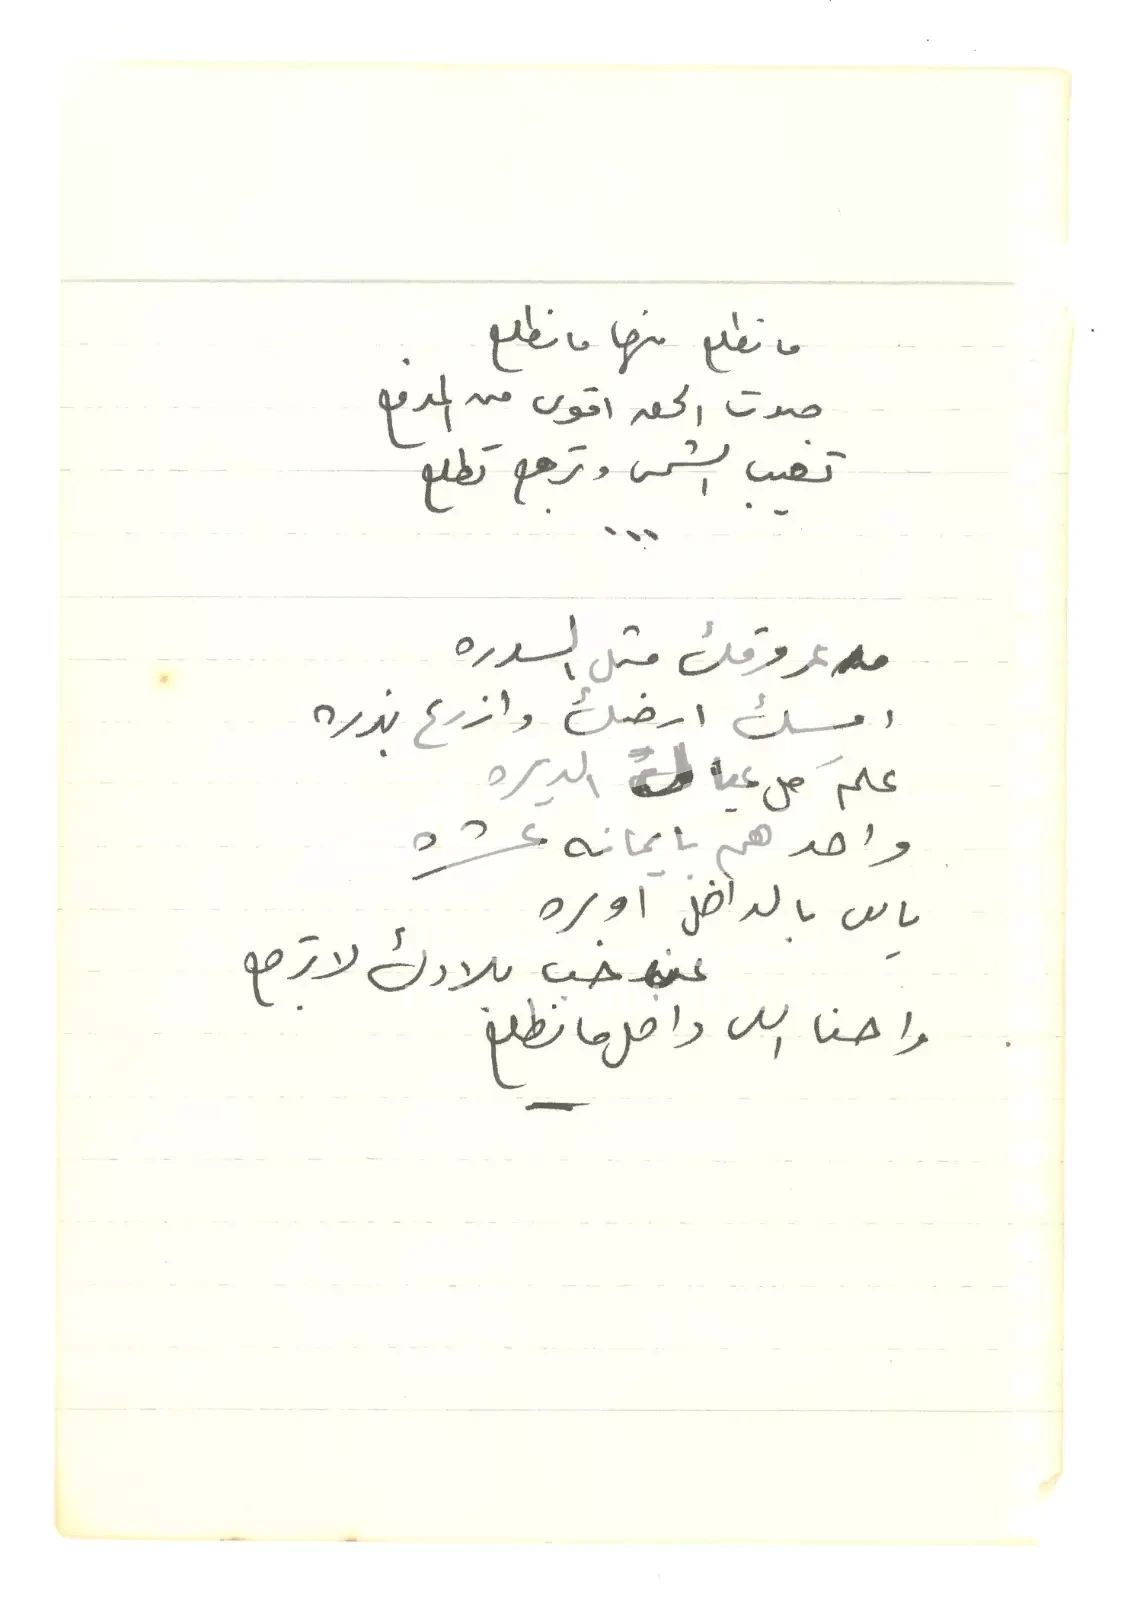 ما نطلع منها ما نطلع
صوت الحق اقوى من المدفع
تغيب الشمس وترجع تطلع
...
مد عروقك مثل السدره
امسك ارضك وازرع بذره
علم كل عيال الديره
واحدهم بايمانه عشره
ياللي بالداخل اوبره
عن حب بلادك لا ترجع
واحنا اللي داخل ما نطلع